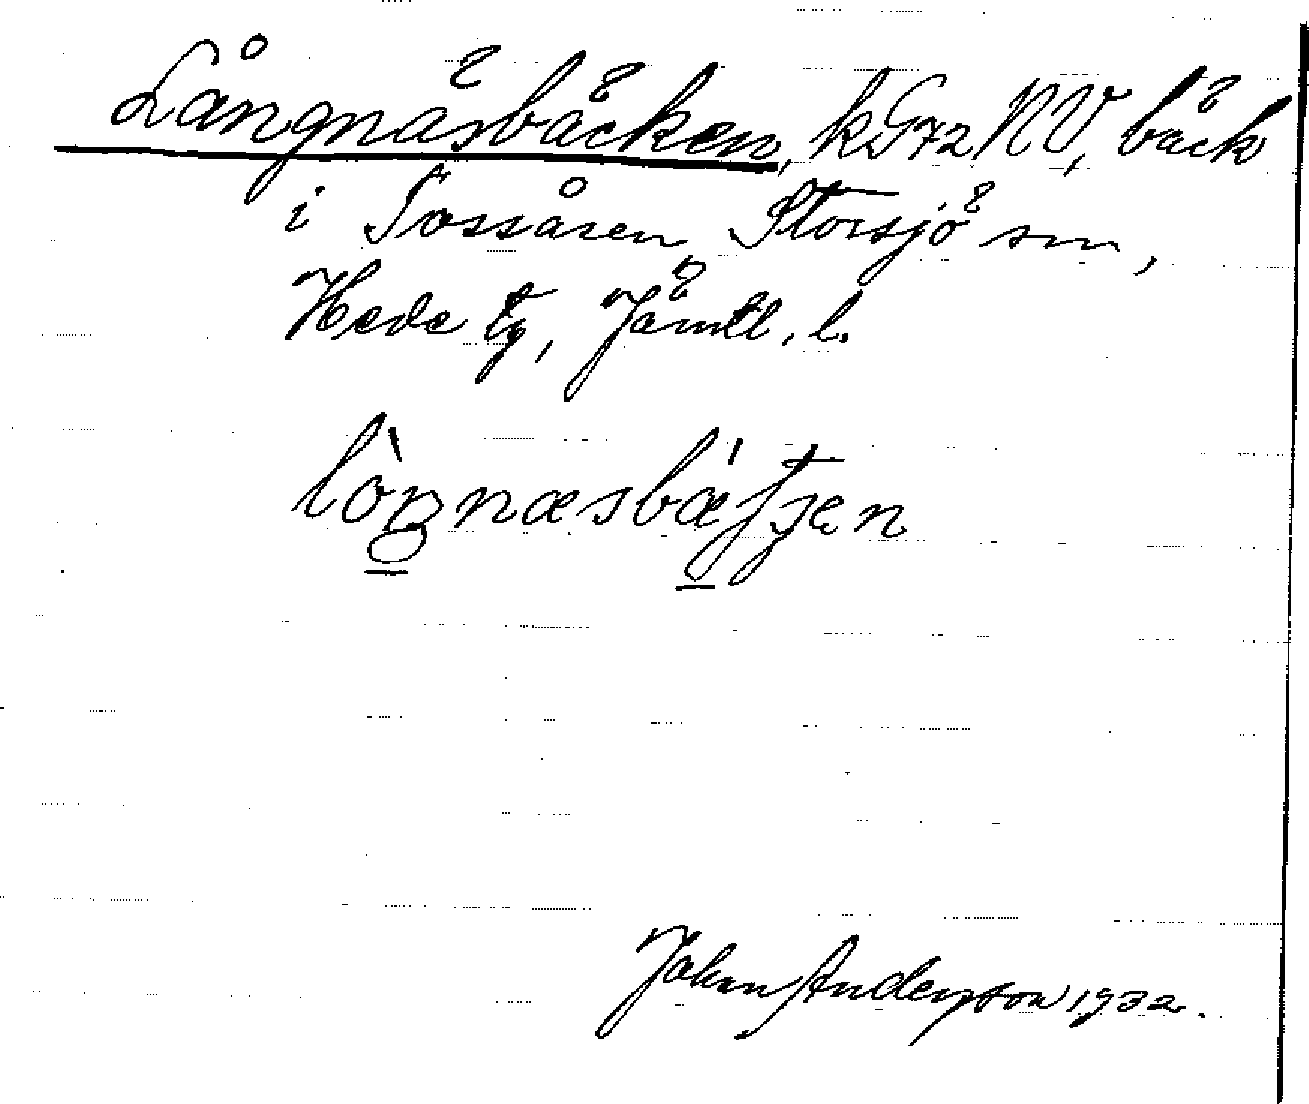 Långnäsbäcken, kG72 NV, bäck
i Tossåsen Storsjö sn,
Hede tg, Jämtl. l.
lòŋnæsbǽʃʃen
Johan Anderson 1932.